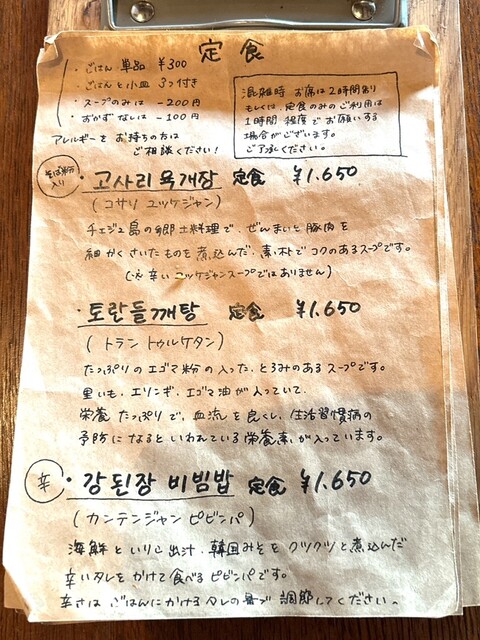 定食
・ごはん 単品 ¥300
・ごはんと小皿 3つ付き
・スープのみは -200円
・おかずなしは -100円
アレルギーをお持ちの方は
ご相談ください!
混雑時 お席は2時間制り
もしくは、定食のみのご利用は
1時間程度でお願いする
場合がございます。
ご了承ください。
そば粉
入り
・고사리육개장 定食 ¥1.650
(コサリ ユッケジャン)
チェジュ島の郷土料理で、ぜんまいと豚肉を
細かくさいたものを煮込んだ、素朴でコクのあるスープです。
(※辛いユッケジャンスープではありません)
・토란들깨탕 定食 ¥1.650
(トラン トゥルケタン)
たっぷりのエゴマ粉の入った、とろみのあるスープです。
里いも、エリンギ、エゴマ油が入っていて、
栄養たっぷりで、血流を良くし、生活習慣病の
予防になるといわれている栄養素が入っています。
辛
・강된장 비빔밥 定食 ¥1.650
(カンテンジャン ピビンパ)
海鮮といりこ出汁、韓国みそをクツクツと煮込んだ
辛いタレをかけて食べるピビンパです。
辛さはごはんにかけるタレの量で調節してください。